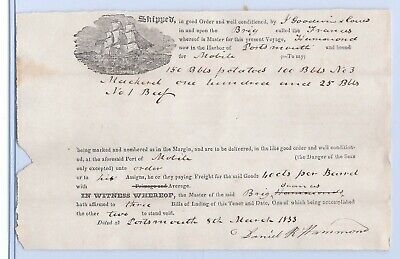 Shipped, in good Order and well conditioned, by J Goodwin & Coues
in and upon the Brig called the Frances
whereof is Master for this present Voyage, Hammond
now in the Harbor of Portsmouth and bound
for Mobile —To say:
150 Bbls potatoes 100 Bbls No 3
Mackerel one hundred and 25 Bbls
No 1 Beef
being marked and numbered as in the Margin, and are to be delivered, in the like good order and well condition-
ed, at the aforesaid Port of Mobile (the Danger of the Seas
only excepted) unto order
or to his Assigns, he or they paying Freight for the said Goods 60cts per Barrel
with Primage and Average.
IN WITNESS WHEREOF, the Master of the said Brig Hammond Frances
hath affirmed to three Bills of Lading of this Tenor and Date, One of which being accomplished
the other two to stand void.
Dated at Portsmouth 8th March 1833
Daniel R Hammond